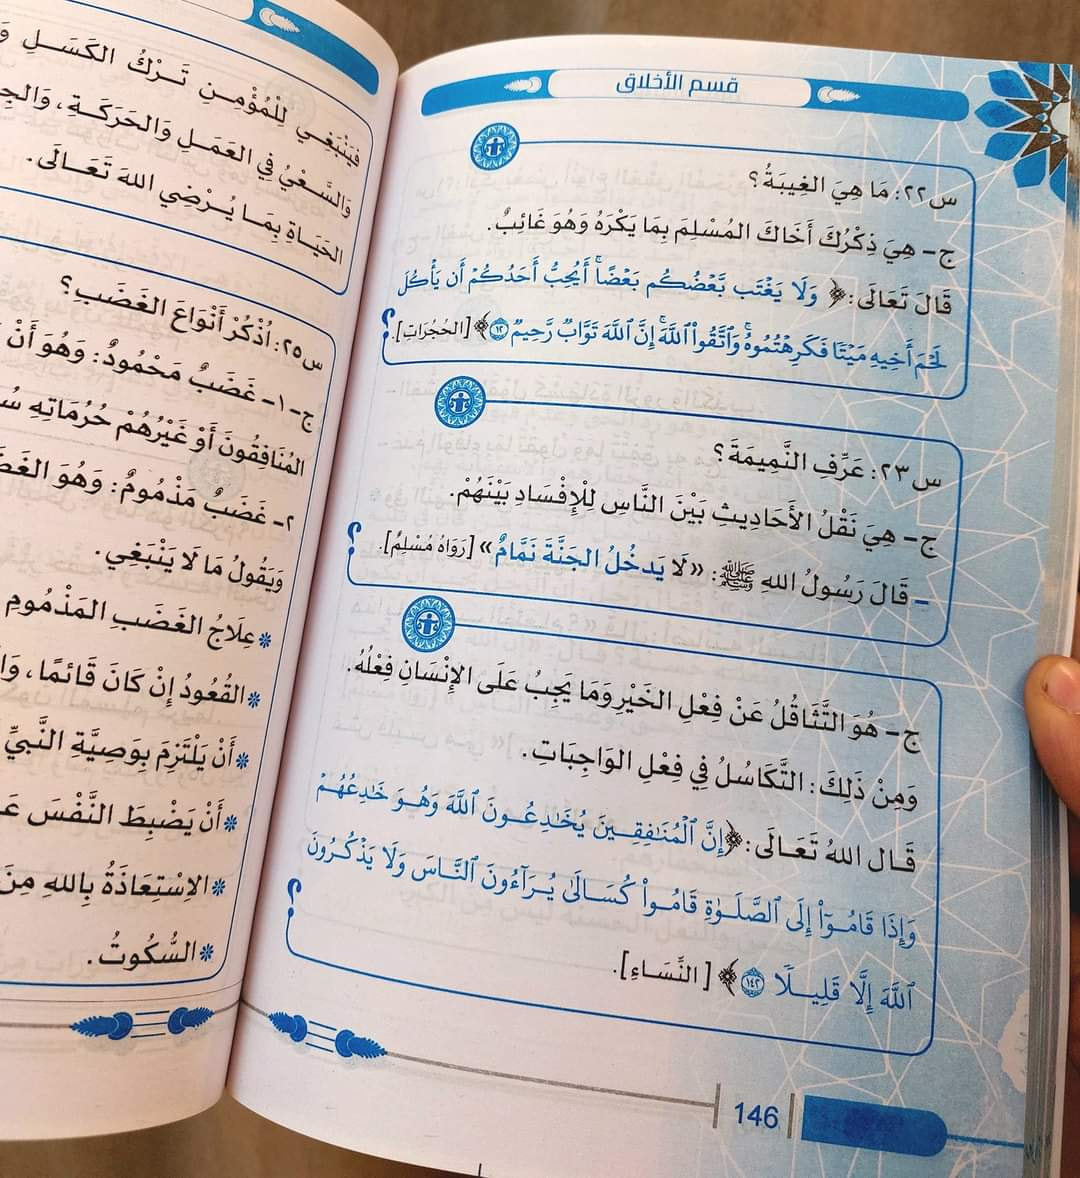 قسم الأخلاق
س٢٢: مَا هِيَ الغِيبَةُ؟
ج- هِيَ ذِكْرُكَ أَخَاكَ المُسْلِمَ بِمَا يَكْرَهُ وَهُوَ غَائِبٌ.
قَالَ تَعَالَى: ﴿ وَلَا يَغْتَب بَّعْضُكُم بَعْضًا ۚ أَيُحِبُّ أَحَدُكُمْ أَن يَأْكُلَ
لَحْمَ أَخِيهِ مَيْتًا فَكَرِهْتُمُوهُ ۚ وَٱتَّقُوا۟ ٱللَّهَ ۚ إِنَّ ٱللَّهَ تَوَّابٌ رَّحِيمٌ ١٢ ﴾ [الحُجُرَاتِ].
س ٢٣: عَرِّفِ النَّمِيمَةَ؟
ج- هِيَ نَقْلُ الأَحَادِيثِ بَيْنَ النَّاسِ لِلْإِفْسَادِ بَيْنَهُمْ.
- قَالَ رَسُولُ اللهِ ﷺ: «لَا يَدخُلُ الجَنَّةَ نَمَّامٌ» [رَوَاهُ مُسْلِمٌ].
ج- هُوَ التَّثَاقُلُ عَنْ فِعْلِ الخَيْرِ وَمَا يَجِبُ عَلَى الإِنْسَانِ فِعْلُهُ.
وَمِنْ ذَلِكَ: التَّكَاسُلُ فِي فِعْلِ الوَاجِبَاتِ.
قَال اللهُ تَعَالَى: ﴿إِنَّ ٱلْمُنَٰفِقِينَ يُخَٰدِعُونَ ٱللَّهَ وَهُوَ خَٰدِعُهُمْ
وَإِذَا قَامُوٓا۟ إِلَى ٱلصَّلَوٰةِ قَامُوا۟ كُسَالَىٰ يُرَآءُونَ ٱلنَّاسَ وَلَا يَذْكُرُونَ
ٱللَّهَ إِلَّا قَلِيلًا ١٤٢ ﴾ [النِّسَاءِ].
146
لِلْمُؤْمِنِ تَرْكُ الكَسَلِ
فَيَنْبَغِي فِي العَمَلِ وَالحَرَكَةِ،
وَالسَّعْيُ
الحَيَاةِ بِمَا يُرْضِي اللهَ تَعَالَى.
س٢٥: اُذْكُرْ أَنْوَاعَ الغَضَبِ؟
ج-١- غَضَبٌ مَحْمُودٌ: وَهُوَ أَنْ
المُنَافِقُونَ أَوْ غَيْرُهُمْ حُرُمَاتِهِ
٢- غَضَبٌ مَذْمُومٌ: وَهُوَ
وَيَقُولُ مَا لَا يَنْبَغِي.
* عِلَاجُ الغَضَبِ المَذْمُومِ
* القُعُودُ إِنْ كَانَ قَائِمًا،
* أَنْ يَلْتَزِمَ بِوَصِيَّةِ النَّبِيِّ
* أَنْ يَضْبِطَ النَّفْسَ
* الاِسْتِعَاذَةُ بِاللهِ مِنَ
* السُّكُوتُ.